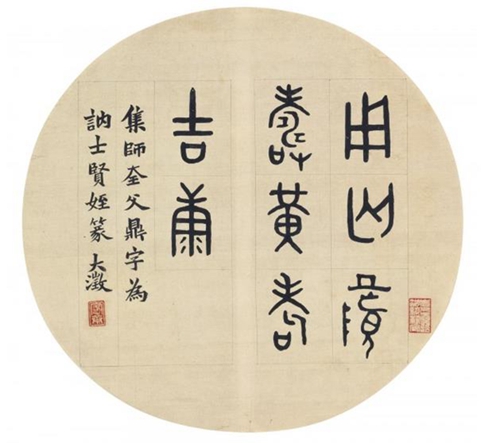 用匄眉
壽黃耇
吉康
集師奎父鼎字為
訥士賢姪篆 大澂